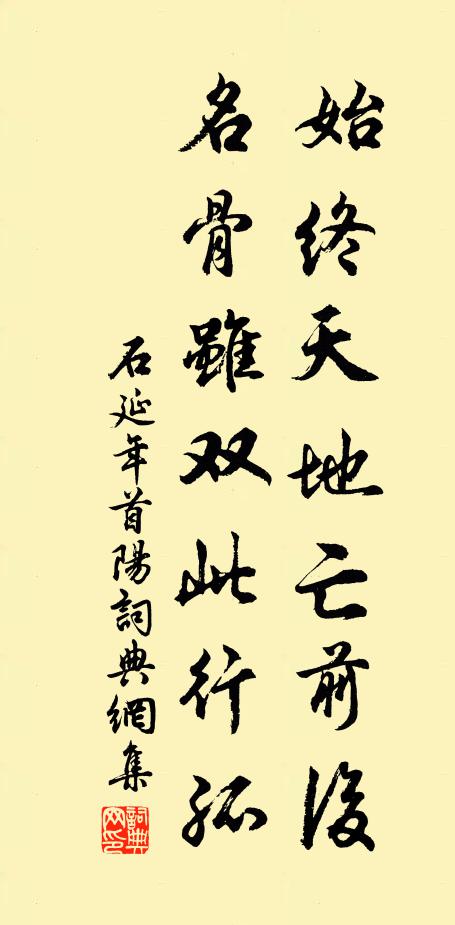 始終天地亡前後
名骨雖双此行孤
石延年首陽詞典網集
詞典网印